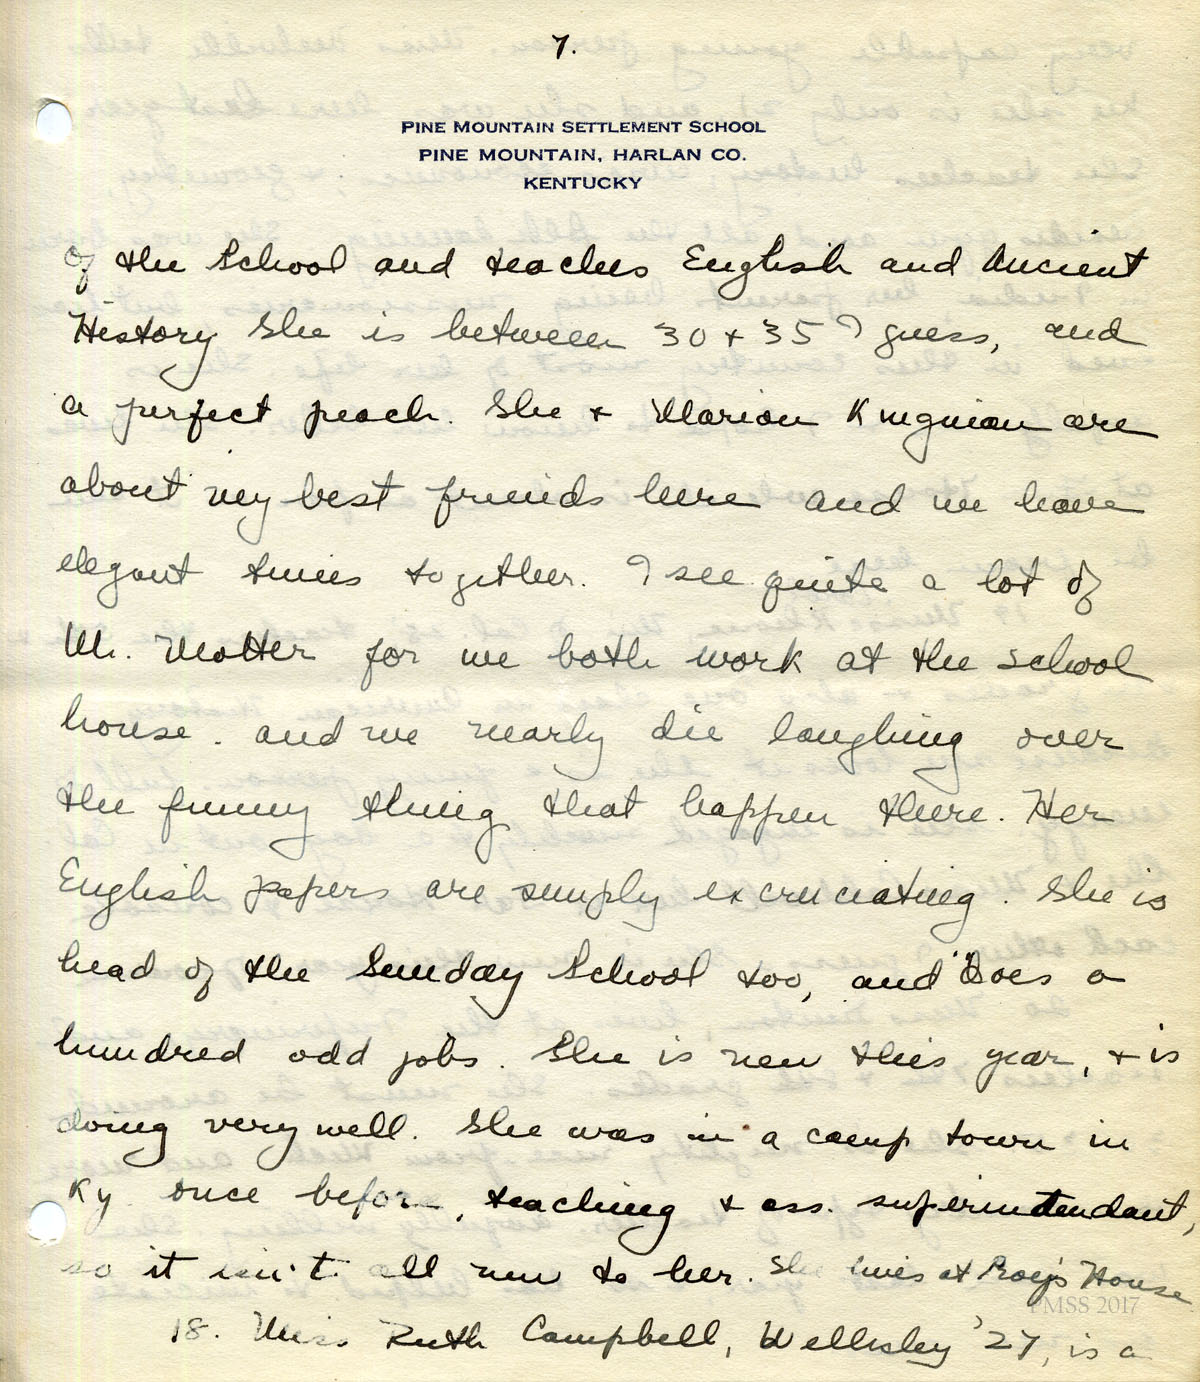 7.
PINE MOUNTAIN SETTLEMENT SCHOOL
PINE MOUNTAIN, HARLAN CO.
KENTUCKY
of the School and teaches English and Ancient
History She is between 30 + 35 I guess, and
a perfect peach. She + Marion Kingman are
about my best friends here and we have
elegant times together. I see quite a lot of
M. Motter for we both work at the school
house. and we nearly die laughing over
the funny thing that happen there. Her
English papers are simply excruciating. She is
head of the Sunday School too, and does a
hundred odd jobs. She is new this year, + is
doing very well. She was in a camp town in
Ky once before, teaching + ass. superintendant,
so it isn't all new to her. She lives at Boy's House
18. Miss Ruth Campbell, Wellesley '27, is a
PMSS 2017